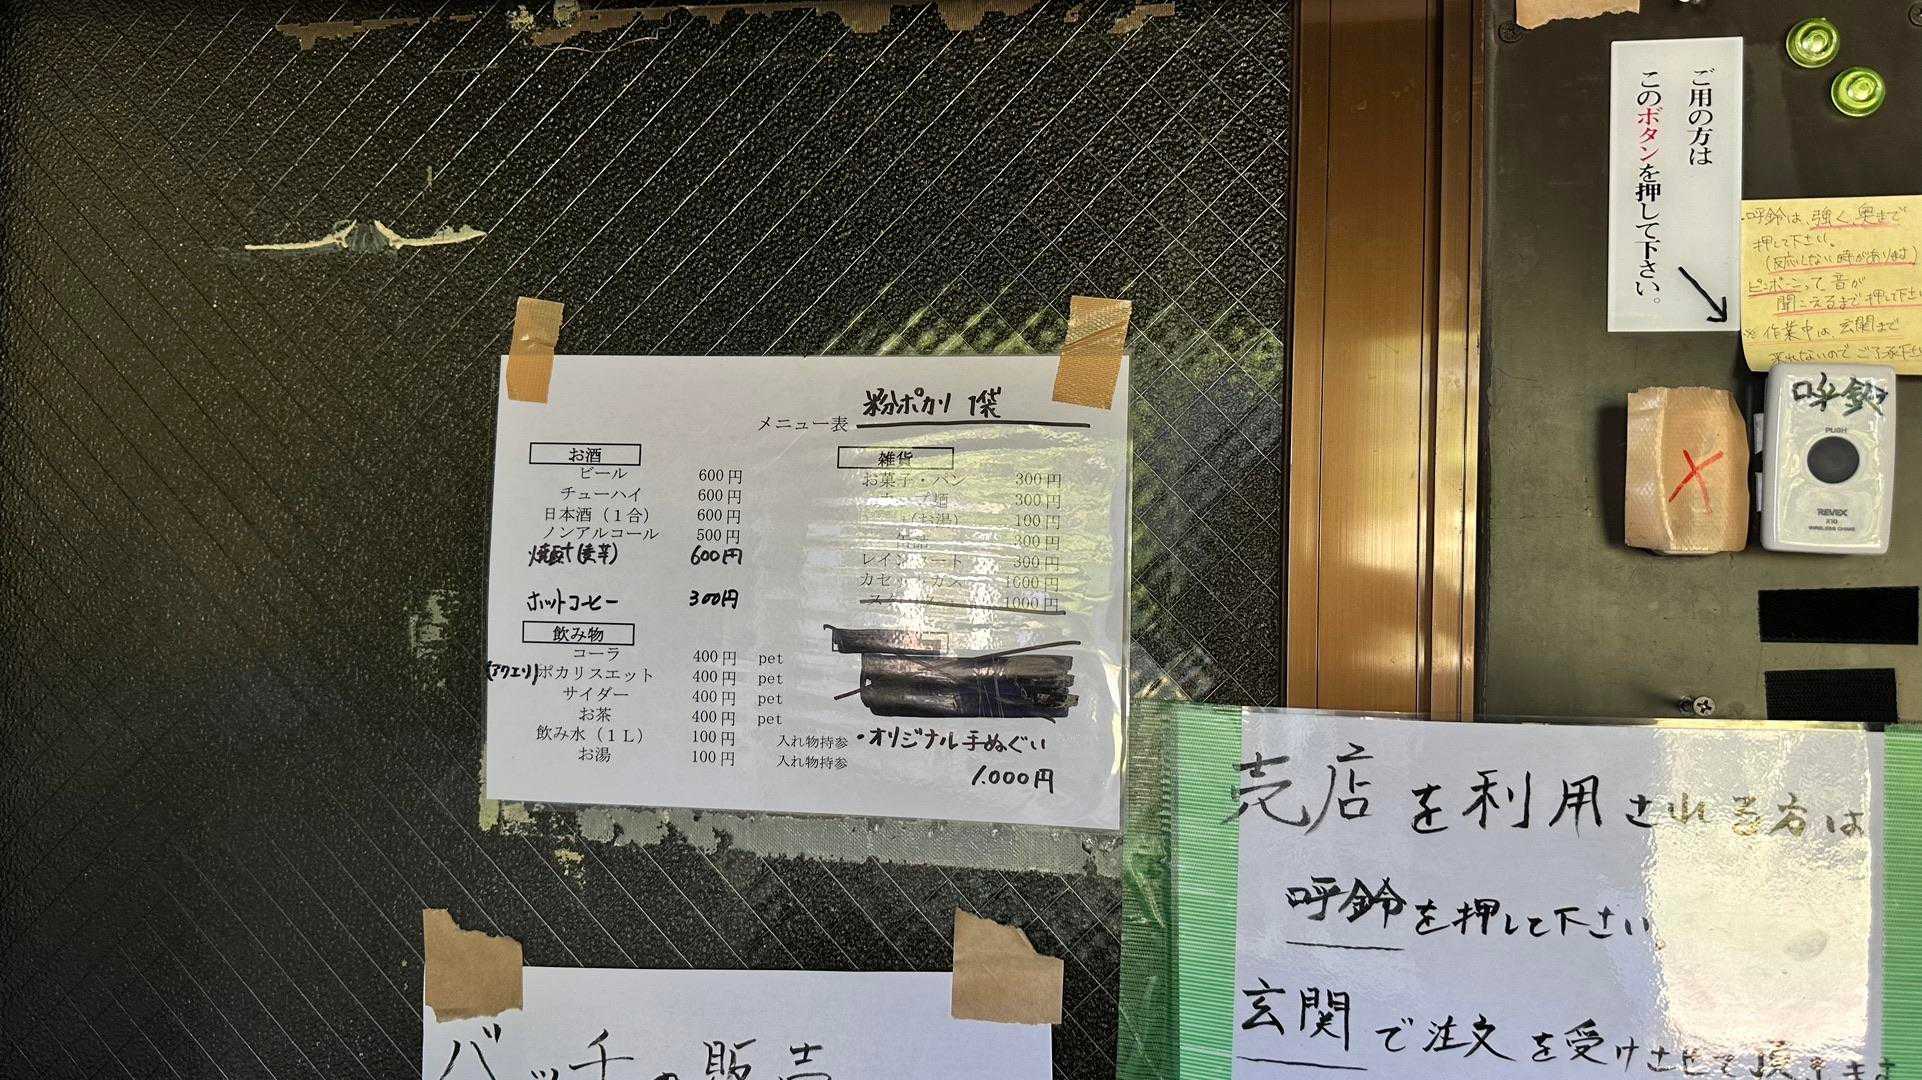 粉ポカリ 1袋
メニュー表
お酒
ビール 600円
チューハイ 600円
日本酒（１合） 600円
ノンアルコール 500円
焼酎（麦芋） 600円
ホットコーヒー 300円
飲み物
コーラ 400円 pet
(アクエリ)ポカリスエット 400円 pet
サイダー 400円 pet
お茶 400円 pet
飲み水（１Ｌ） 100円 入れ物持参
お湯 100円 入れ物持参
雑貨
お菓子・パン 300円
麺 300円
(お湯) 100円
300円
レインコート 300円
カセットガス 1000円
1000円
・オリジナル手ぬぐい
1,000円
ご用の方は
このボタンを押して下さい。
呼鈴は、強く、奥まで
押して下さい。
(反応しない時があります)
ピンポーンって音が
聞こえるまで押して下さい
※作業中は玄関まで
来れないのでご了承下さい
呼鈴
PUSH
REVEX
X10
WIRELESS CHIME
売店を利用される方は
呼鈴を押して下さい。
玄関で注文を受けさせて頂きます
バッチの販売